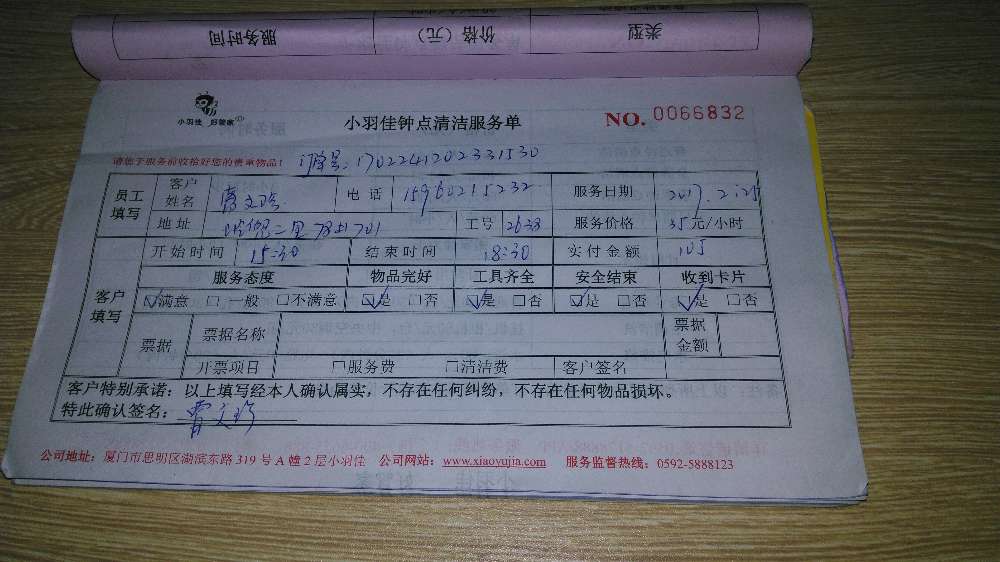 服务时间 价格（元） 类型
小羽佳 好管家
小羽佳钟点清洁服务单
NO. 0066832
请您于服务前收拾好您的贵重物品！
订单号：1702241202331530
员工填写 客户姓名 曹文 电话 15960215232 服务日期 2017.2.25
地址 二里78号701 工号 2638 服务价格 35元/小时
客户填写 开始时间 15:30 结束时间 18:30 实付金额 105
服务态度 物品完好 工具齐全 安全结束 收到卡片
☑满意 □一般 □不满意 ☑是 □否 ☑是 □否 ☑是 □否 ☑是 □否
票据 票据名称 票据金额
开票项目 □服务费 □清洁费 客户签名
客户特别承诺：以上填写经本人确认属实，不存在任何纠纷，不存在任何物品损坏。
特此确认签名：曹文
公司地址：厦门市思明区湖滨东路319号A幢2层小羽佳 公司网站：www.xiaoyujia.com 服务监督热线：0592-5888123